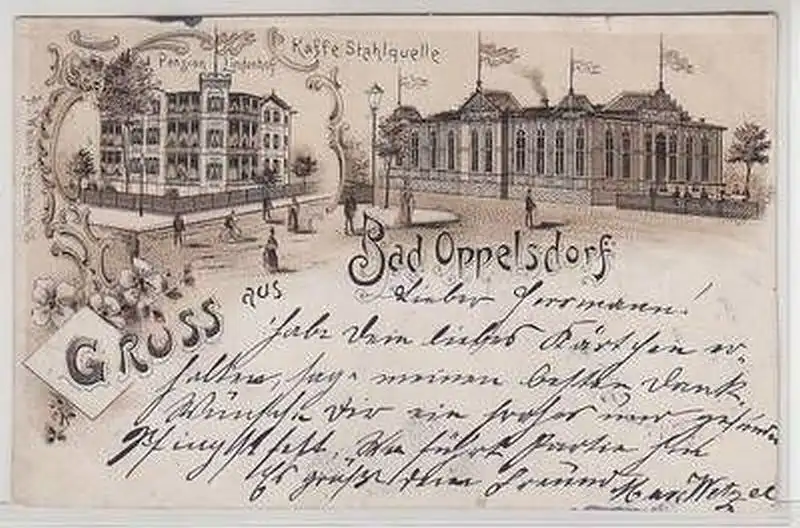 Pension Lindenhof
Kaffe Stahlquelle
Gruss aus
Bad Oppelsdorf
Lieber Herrmann!
habe Dein liebes Kärtchen er-
halten, sage meinen besten Dank.
Wünsche Dir ein frohes und gesundes
Pfingstfest, Wo führt Partie hin
Es grüßt Dein Freund Max Wetzel